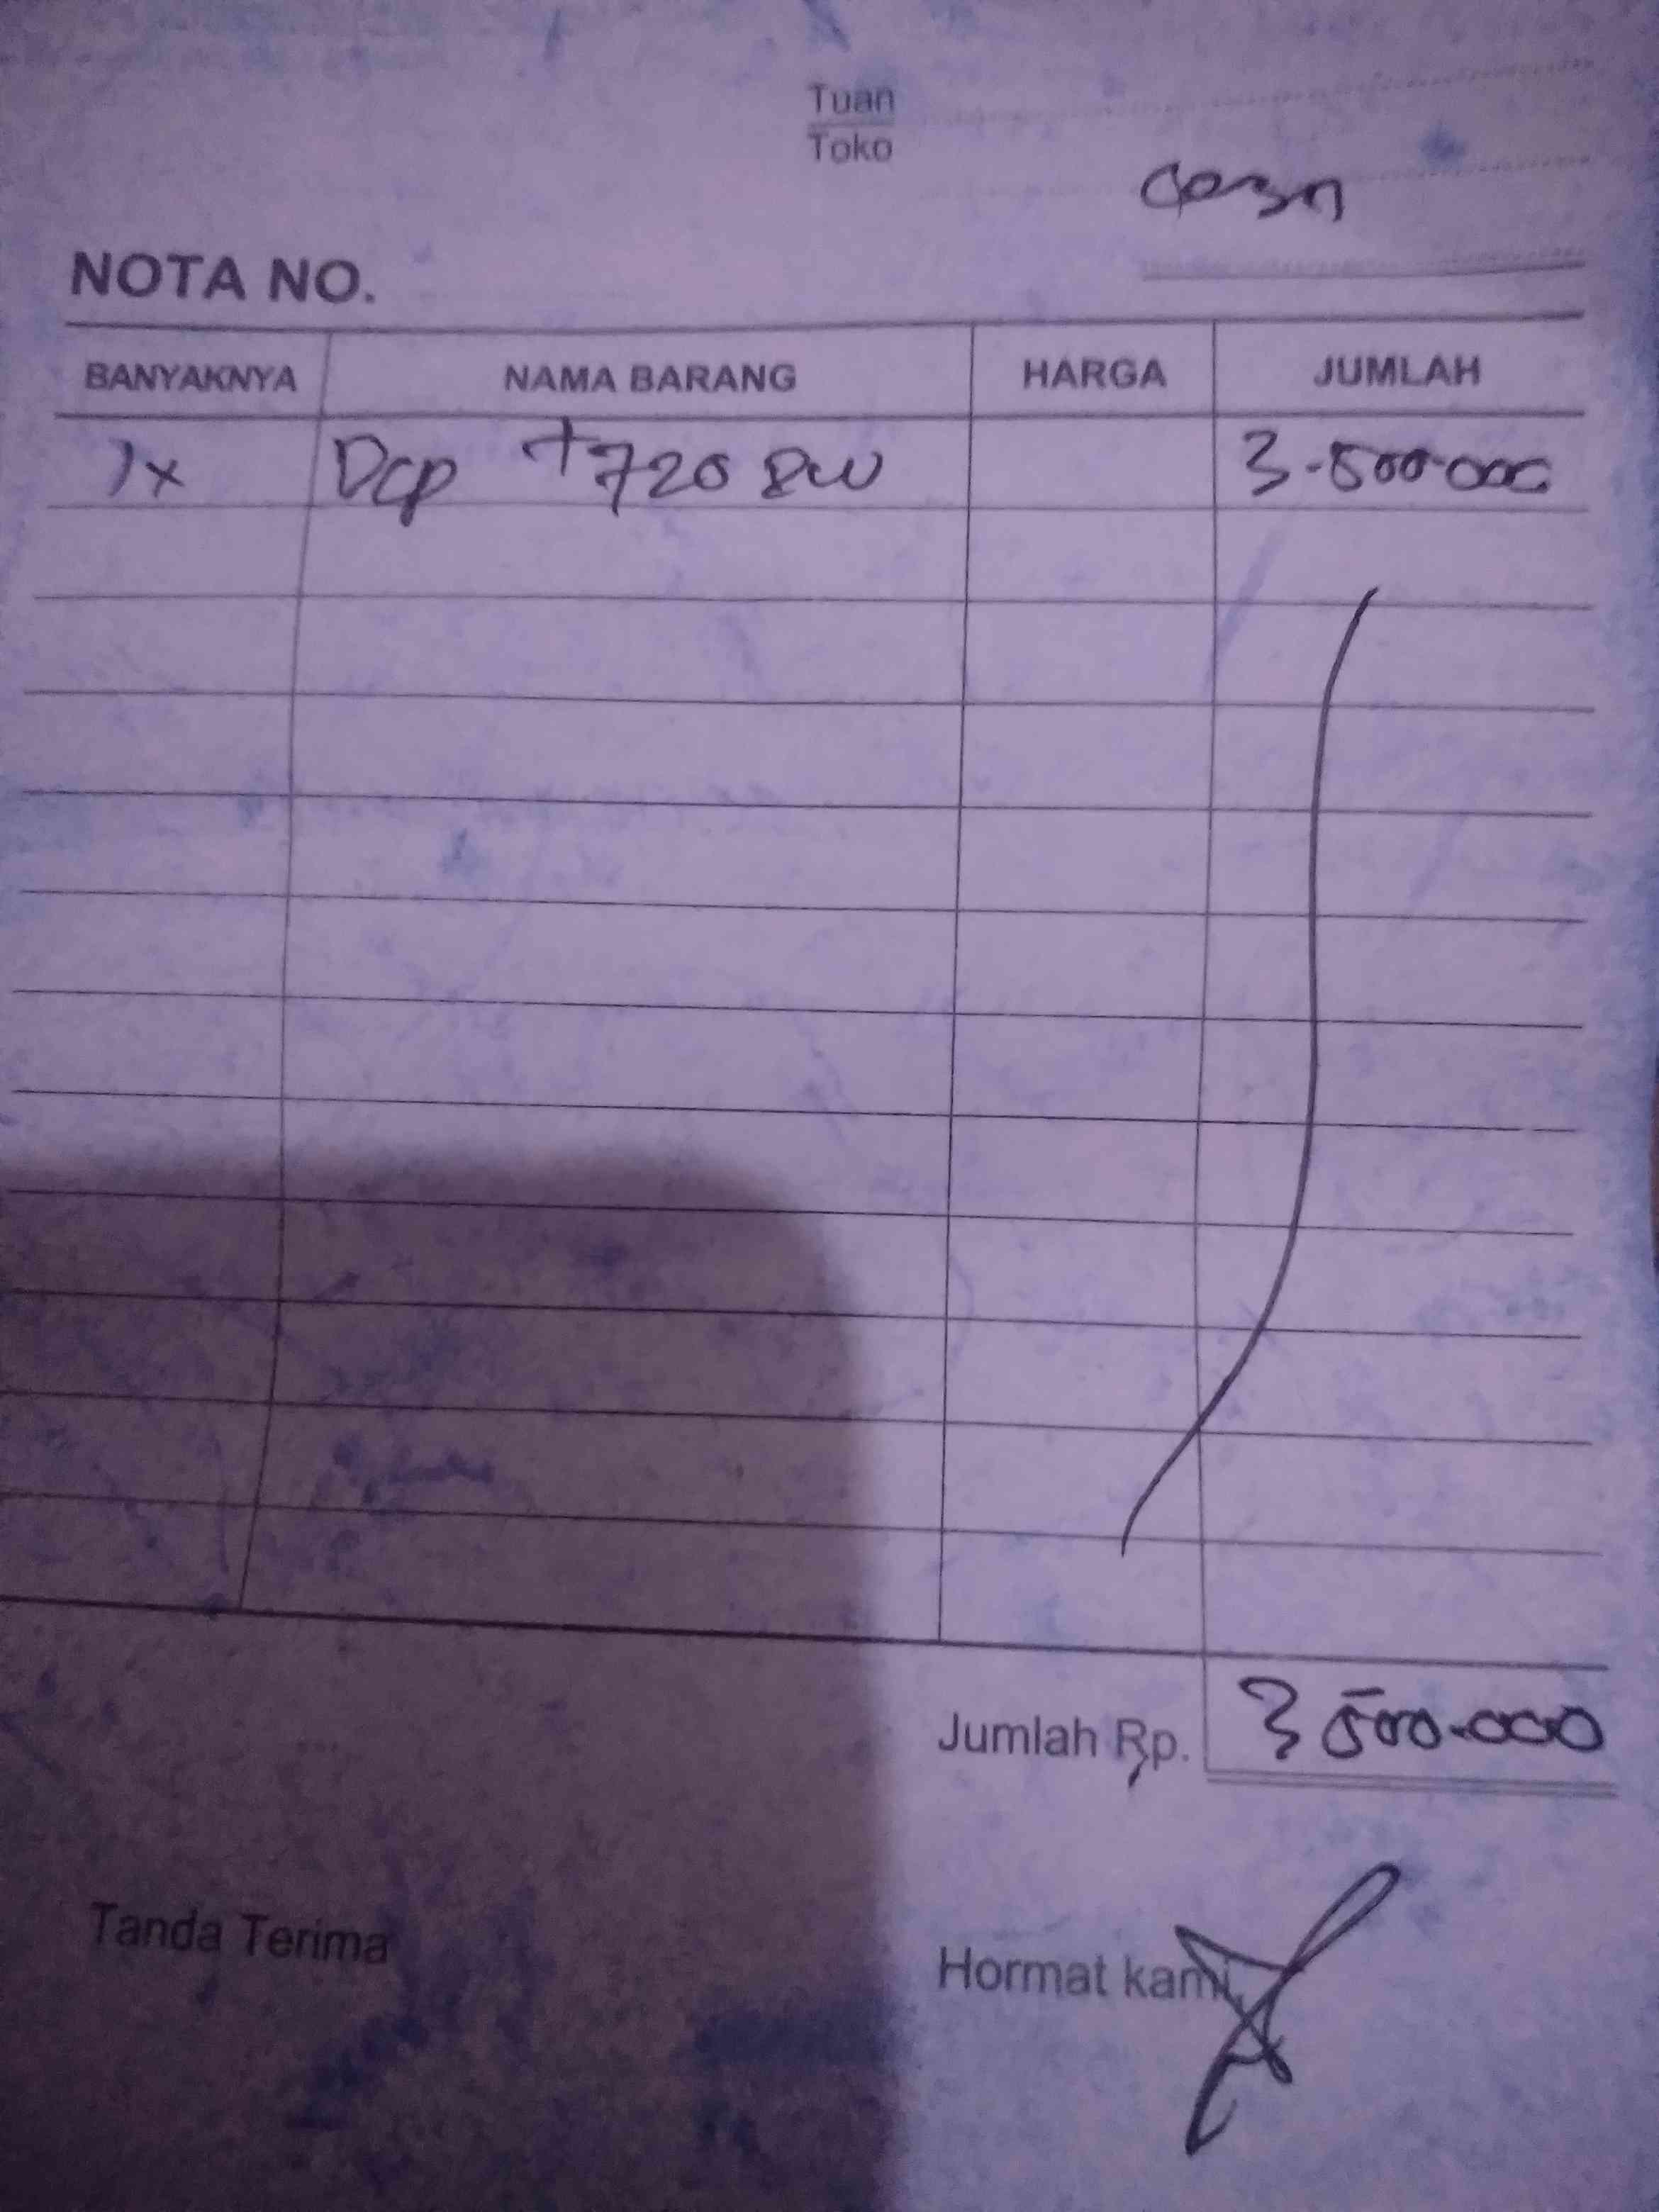 Tuan
Toko
Cash
NOTA NO.
BANYAKNYA NAMA BARANG HARGA JUMLAH
1x Dcp T720 DW 3.500.000
Jumlah Rp. 3 500.000
Tanda Terima Hormat kami,